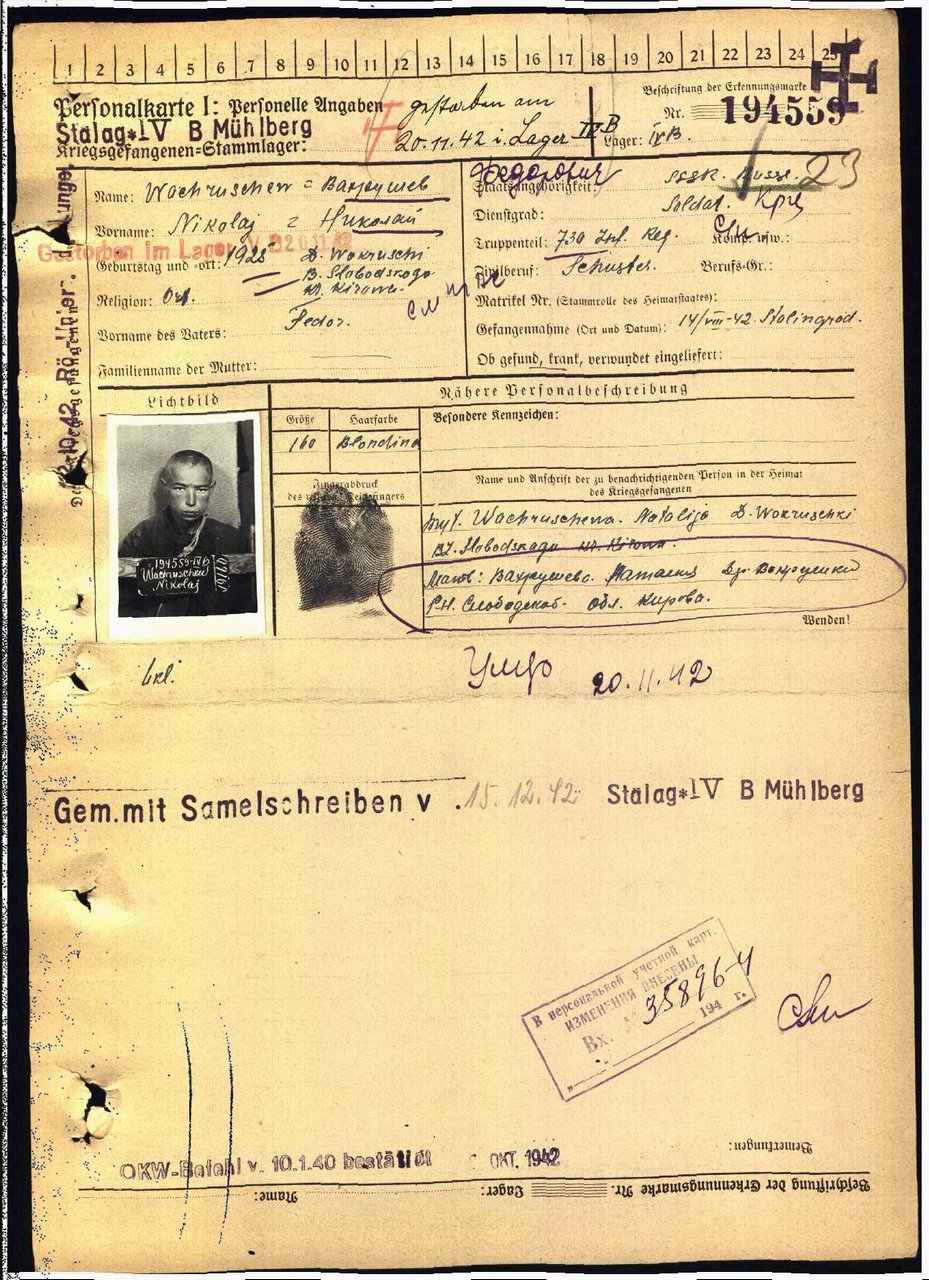 1 2 3 4 5 6 7 8 9 10 11 12 13 14 15 16 17 18 19 20 21 22 23 24 25
Personalkarte I: Personelle Angaben
gestorben am
20.11.42 i. Lager IV B
Beschriftung der Erkennungsmarke
Nr. 194559
Stalag*IV B Mühlberg
Kriegsgefangenen=Stammlager:
Lager: IVB.
Name: Wachruschew = Вахрушев
Vorname: Nikolaj = Николай
Gestorben im Lager
Geburtstag und -ort: 1923 D. Wokruschi
Religion: Ort.
Vorname des Vaters: Fedor.
Familienname der Mutter:
Федорович
Staatsangehörigkeit: Russe. 23
Dienstgrad: Soldat.
Truppenteil: 730 Inf. Reg. Komp. usw.:
Zivilberuf: Schuster. Berufs-Gr.:
Matrikel Nr. (Stammrolle des Heimatstaates):
Gefangennahme (Ort und Datum): 14/VIII-42. Stalingrad.
Ob gesund, krank, verwundet eingeliefert:
Lichtbild
Nähere Personalbeschreibung
Größe Haarfarbe Besondere Kennzeichen:
160 Blondin
194559-IVB
Wachruschew
Nikolaj
Fingerabdruck
des rechten Zeigefingers
Name und Anschrift der zu benachrichtigenden Person in der Heimat
des Kriegsgefangenen
Wachruschewa. Natalija D. Wokruschki
Вахрушева. Наталия Др. Вахрушки
Рн. Слободской. Обл. Кирова.
Wenden!
Умер 20.11.42
Gem.mit Samelschreiben v. 15.12.42 Stalag*IV B Mühlberg
В персональной учетной карт.
ИЗМЕНЕНИЯ ВНЕСЕНЫ
Вх. № 35896-4
194 г.
Bemerkungen:
OKW-Befehl v. 10.1.40 bestätigt OKT. 1942
Beschriftung der Erkennungsmarke Nr. Lager: Name: